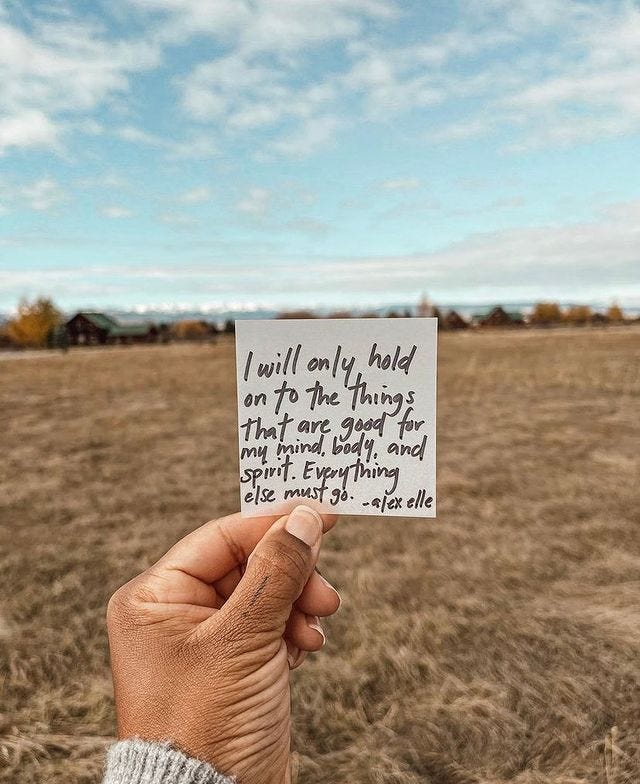 I will only hold
on to the things
that are good for
my mind, body, and
spirit. Everything
else must go. -alex elle